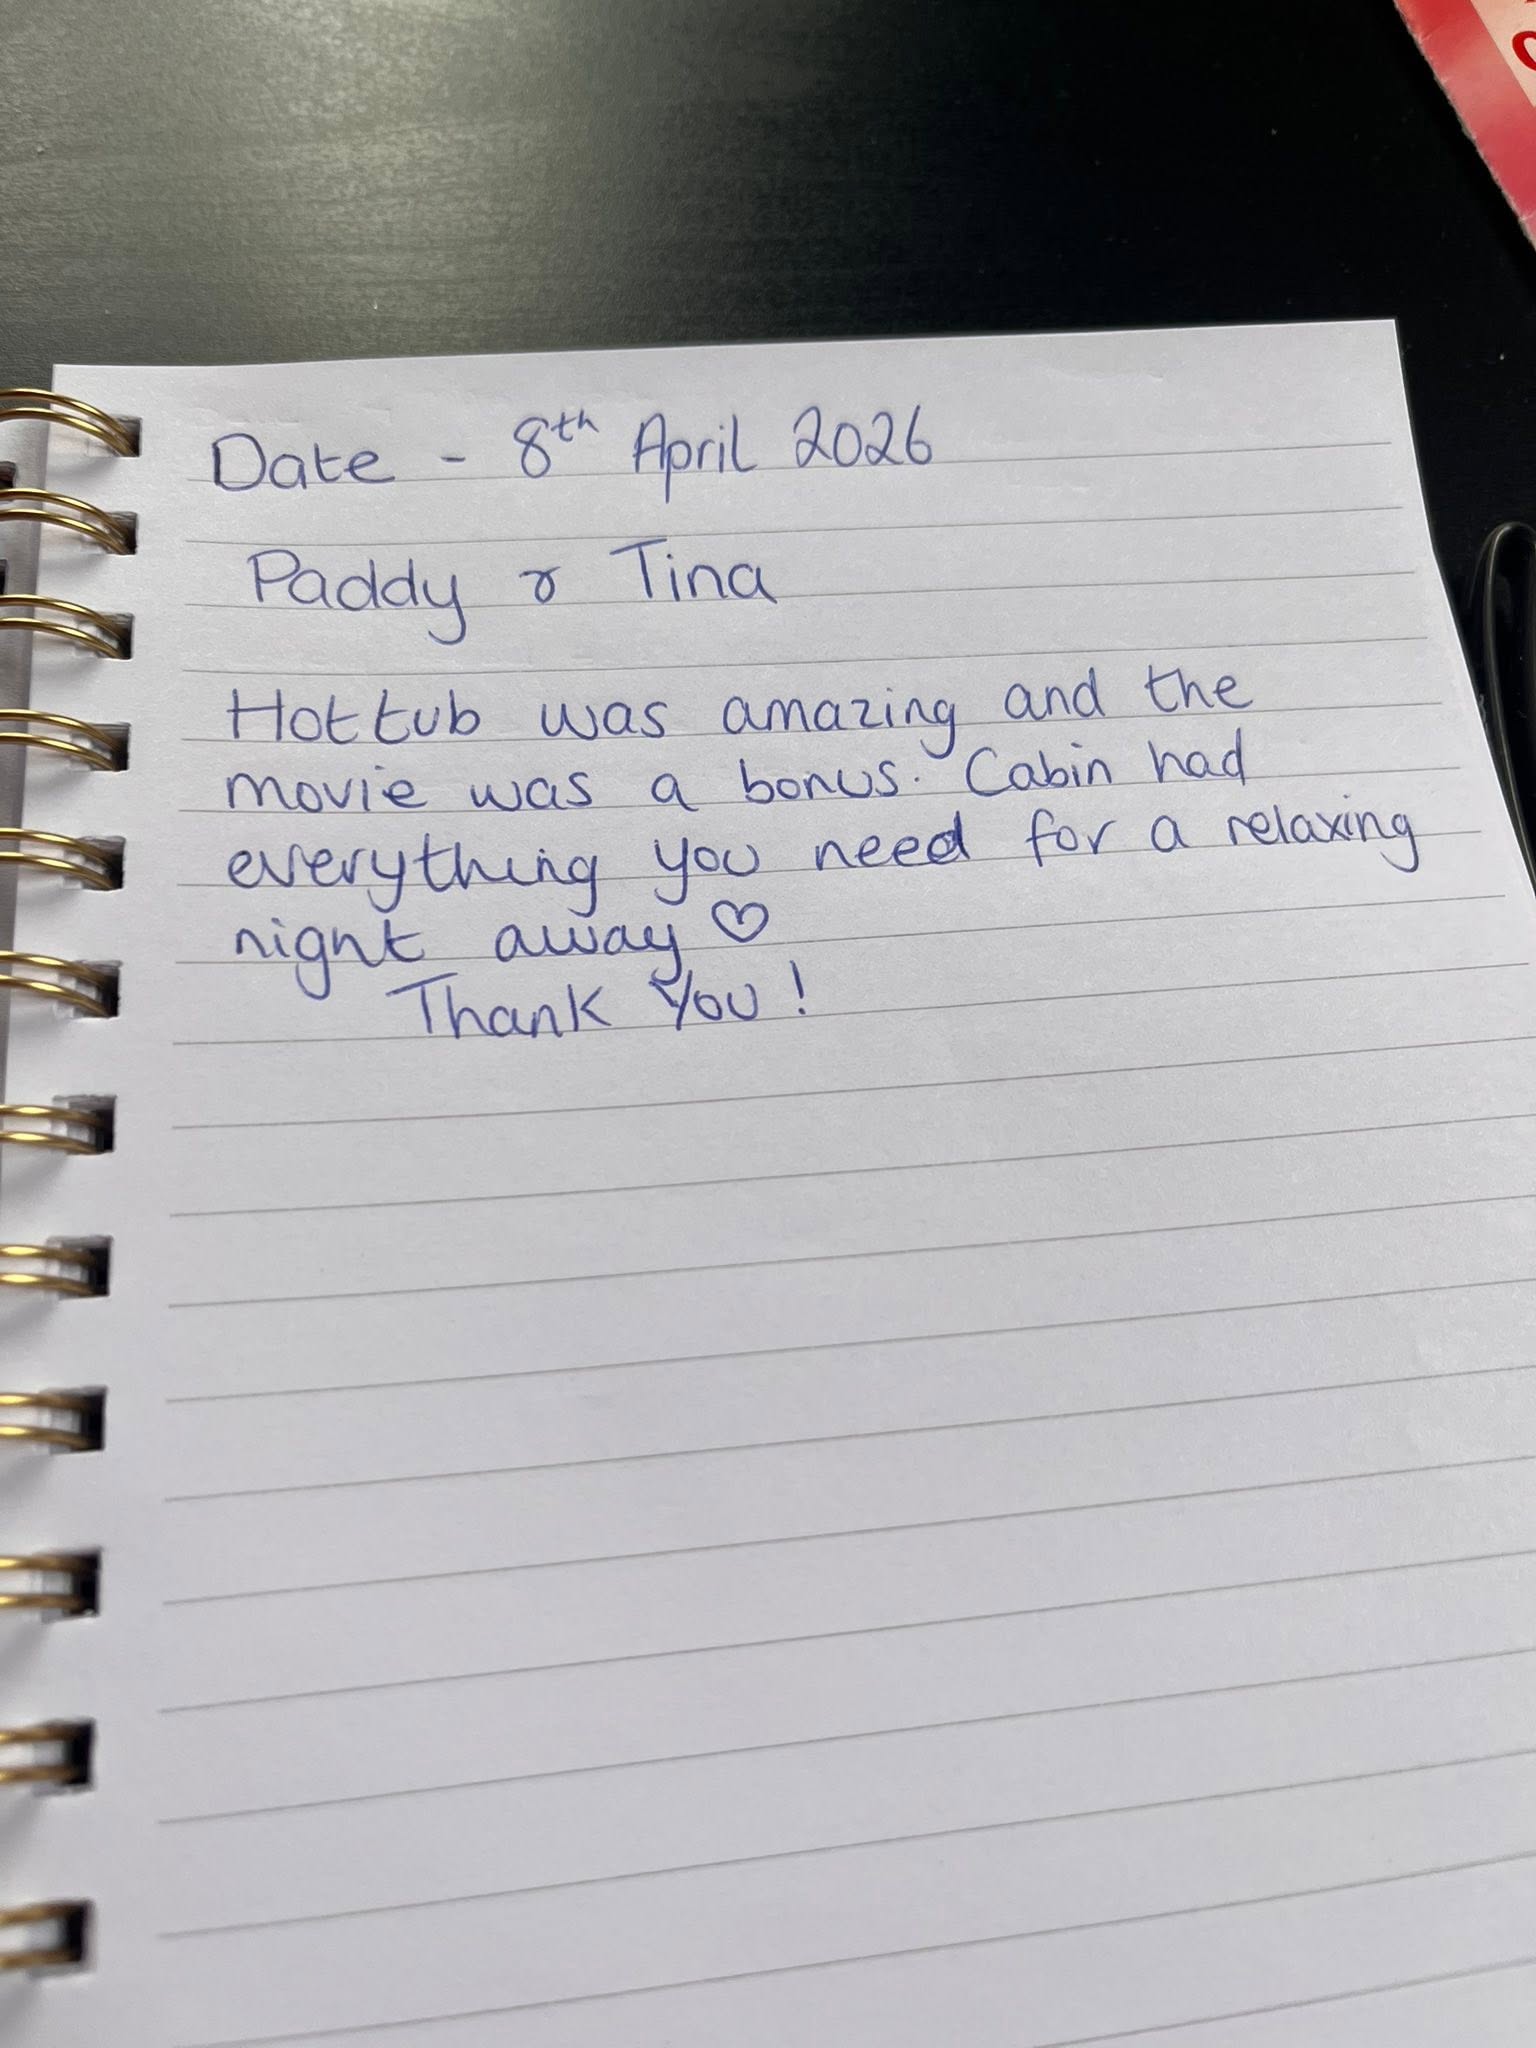 Date - 8th April 2026
Paddy & Tina
Hot tub was amazing and the
movie was a bonus. Cabin had
everything you need for a relaxing
night away ♡
Thank You!